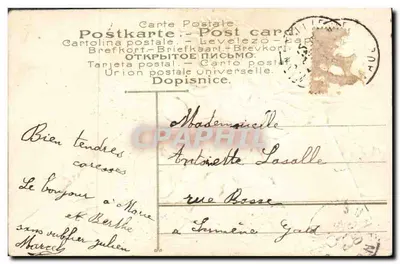 Carte Postale
Postkarte - Post card
Cartolina postale. - Levelezo-
Brefkort-Briefkaart-Brevkort
ОТКРЫТОЕ ПИСЬМО.
Tarjeta postal. - Carto postal
Union postale universelle.
Dopisnice.
Mademoiselle
Antoinette Lasalle
rue Basse
à Sumène Gard
Bien tendres
caresses
Le bonjour à Marie
et Berthe
sans oublier Julien
Marcel
CPAPHIL